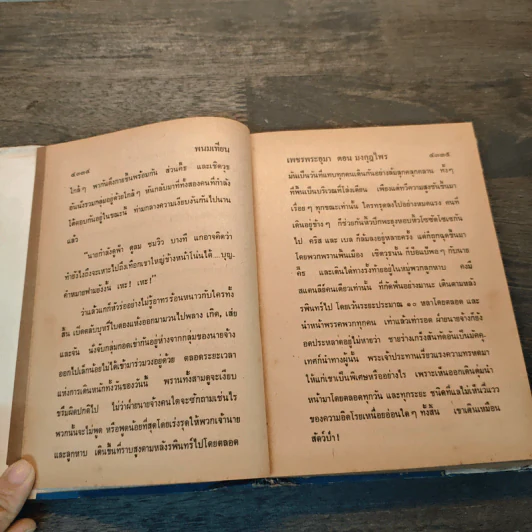 ๔๓๑๔ พนมเทียน
ใกล้ๆ พากันดึงกายขึ้นพร้อมกัน ส่วนคริช และเชิดวุธ
อันนั่งรวมกลุ่มอยู่ด้วยใกล้ๆ หันกลับมาที่ทั้งสองคนที่กำลัง
โต้ตอบกันอยู่ในขณะนี้ ท่ามกลางความเงียบงันกันไปนาน
แล้ว
“นายกำลังดูฟ้า ดูลม ชมวิว บางที แกอาจคิดว่า
ทำยังไงถึงจะเหาะไปถึงเทือกเขาใหญ่ข้างหน้าโน่นได้...บุญ-
คำหมายฟามยังงั้น เหะ! เหะ!”
ว่าแล้วแกก็หัวร่ออย่างไม่รู้อาทรร้อนหนาวกับใครทั้ง
สิ้น เบ็ดตลับบุหรี่ใบตองแห้งออกมามวนไปพลาง เกิด, เส่ย
และจัน นั่งจับกลุ่มกอดเข่ากันอยู่ห่างจากกลุ่มของนายจ้าง
ออกไปเล็กน้อยไม่ได้เข้ามาร่วมวงอยู่ด้วย ตลอดระยะเวลา
แห่งการเดินหนักทั้งวันของวันนี้ พรานทั้งสามดูจะเงียบ
ขรึมผิดปกติไป ไม่ว่าฝ่ายนายจ้างคนใดจะซักถามเช่นไร
พวกนั้นจะไม่พูด หรือพูดน้อยที่สุดโดยเร่งรุดให้พวกเจ้านาย
และลูกหาบ เดินขึ้นที่ราบสูงตามหลังรพินทร์ไปโดยตลอด
เพชรพระอุมา ตอน มงกุฎไพร ๔๓๑๕
มันเป็นวันที่แทบทุกคนเดินกันอย่างล้มลุกคลุกคลาน ทั้งๆ
ที่พื้นเป็นบริเวณที่โล่งเตียน เพียงแต่ทวีความสูงชันขึ้นมา
เรื่อยๆ ทุกขณะเท่านั้น ใครทรุดลงไปอย่างหมดแรง คนที่
เดินอยู่ข้างๆ ก็ช่วยกันหิ้วปีกพยุงหอบหิ้วโซซัดโซเซกัน
ไป คริส และ เบล ก็ล้มลงอยู่หลายครั้ง แต่ก็ถูกฉุดขึ้นมา
โดยพวกพรานพื้นเมือง เชิดวุธนั้น ก็ป้อแป้พอๆ กับนาย
คริช และเดินได้ทางรั้งท้ายอยู่ในหมู่พวกลูกหาบ คงมี
สแตนลีย์คนเดียวเท่านั้น ที่กัดฟันอย่างมานะ เดินตามหลัง
รพินทร์ไป โดยเว้นระยะประมาณ ๑๐ หลาโดยตลอด และ
นำหน้าพรรคพวกทุกคน เท่าแล้วเท่ารอด ฝ่ายนายจ้างก็ยัง
อดประหลาดอยู่ไม่หายว่า ชายร่างแกร่งสันทัดอันเป็นมัคคุ-
เทศก์นำทางผู้นั้น พระเจ้าประทานเรี่ยวแรงความทรหดมา
ให้แก่เขาเป็นพิเศษหรืออย่างไร เพราะเห็นออกเดินดุ่มนำ
หน้ามาโดยตลอดทุกวัน และทุกระยะ ชนิดที่แลไม่เห็นวี่แวว
ของความอิดโรยเหนื่อยอ่อนใดๆ ทั้งสิ้น เขาเดินเหมือน
สัตว์ป่า!